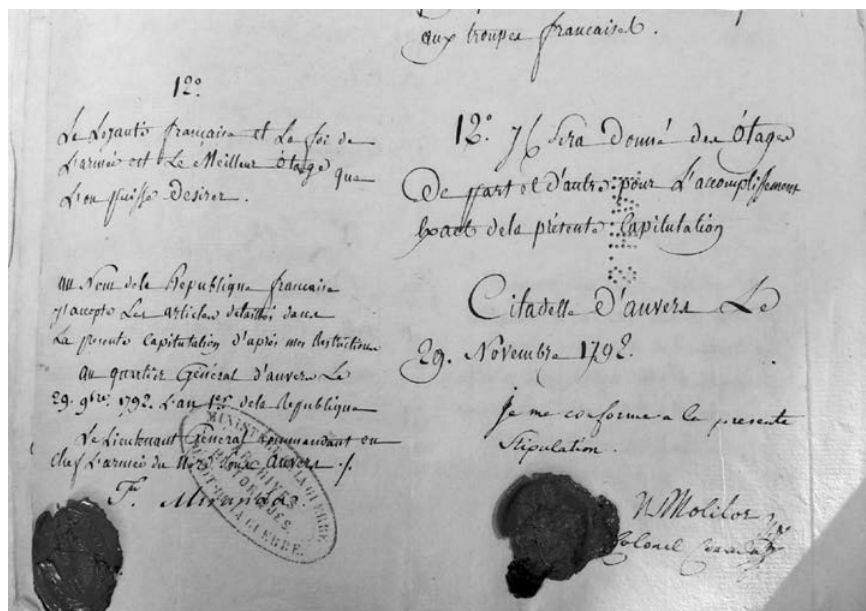 aux troupes francaises.
12º
La Loyauté française et La foi de
L'armée est Le Meilleur Otage que
L'on puisse desirer.
au Nom de la Republique francaise
j'accepte Les articles detaillés dans
La presente Capitulation d'après mes Restrictions
au quartier Général d'anvers Le
29. 9bre. 1792. L'an 1er. de la Republique
Le Lieutenant Général Commandant en
chef L'armée du Nord anvers ./.
Miranda.
MINISTERE DE LA GUERRE
ARCHIVES
HISTORIQUES.
DEPOT DE LA GUERRE.
12º. Il Sera Donné des Ôtages
De part et d'autre pour L'accomplissement
Exact de la présente Capitutation
Citadelle D'anvers Le
29. Novembre 1792.
Je me conforme a la presente
Stipulation.
Molitor
Colonel